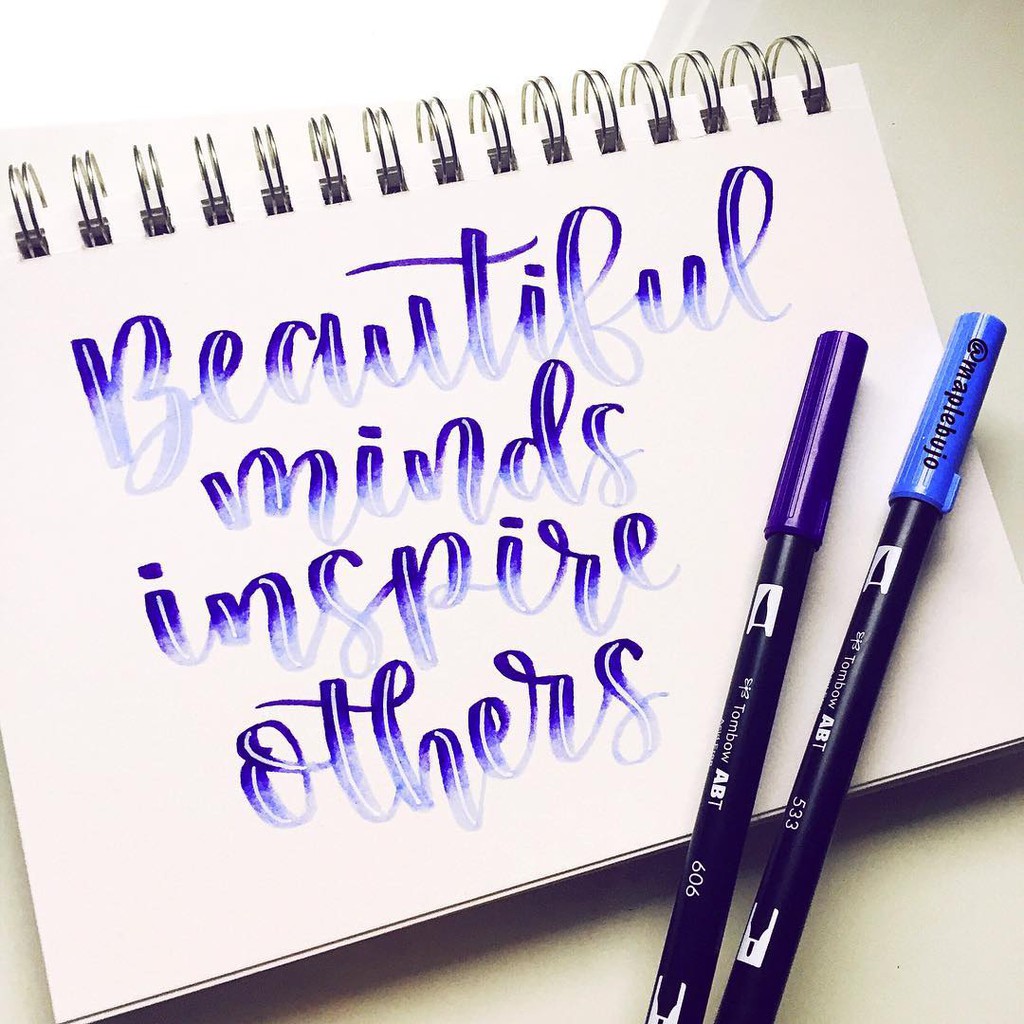 Beautiful
minds
inspire
others
Tombow ABT
606
Tombow ABT
533
@maplebujo